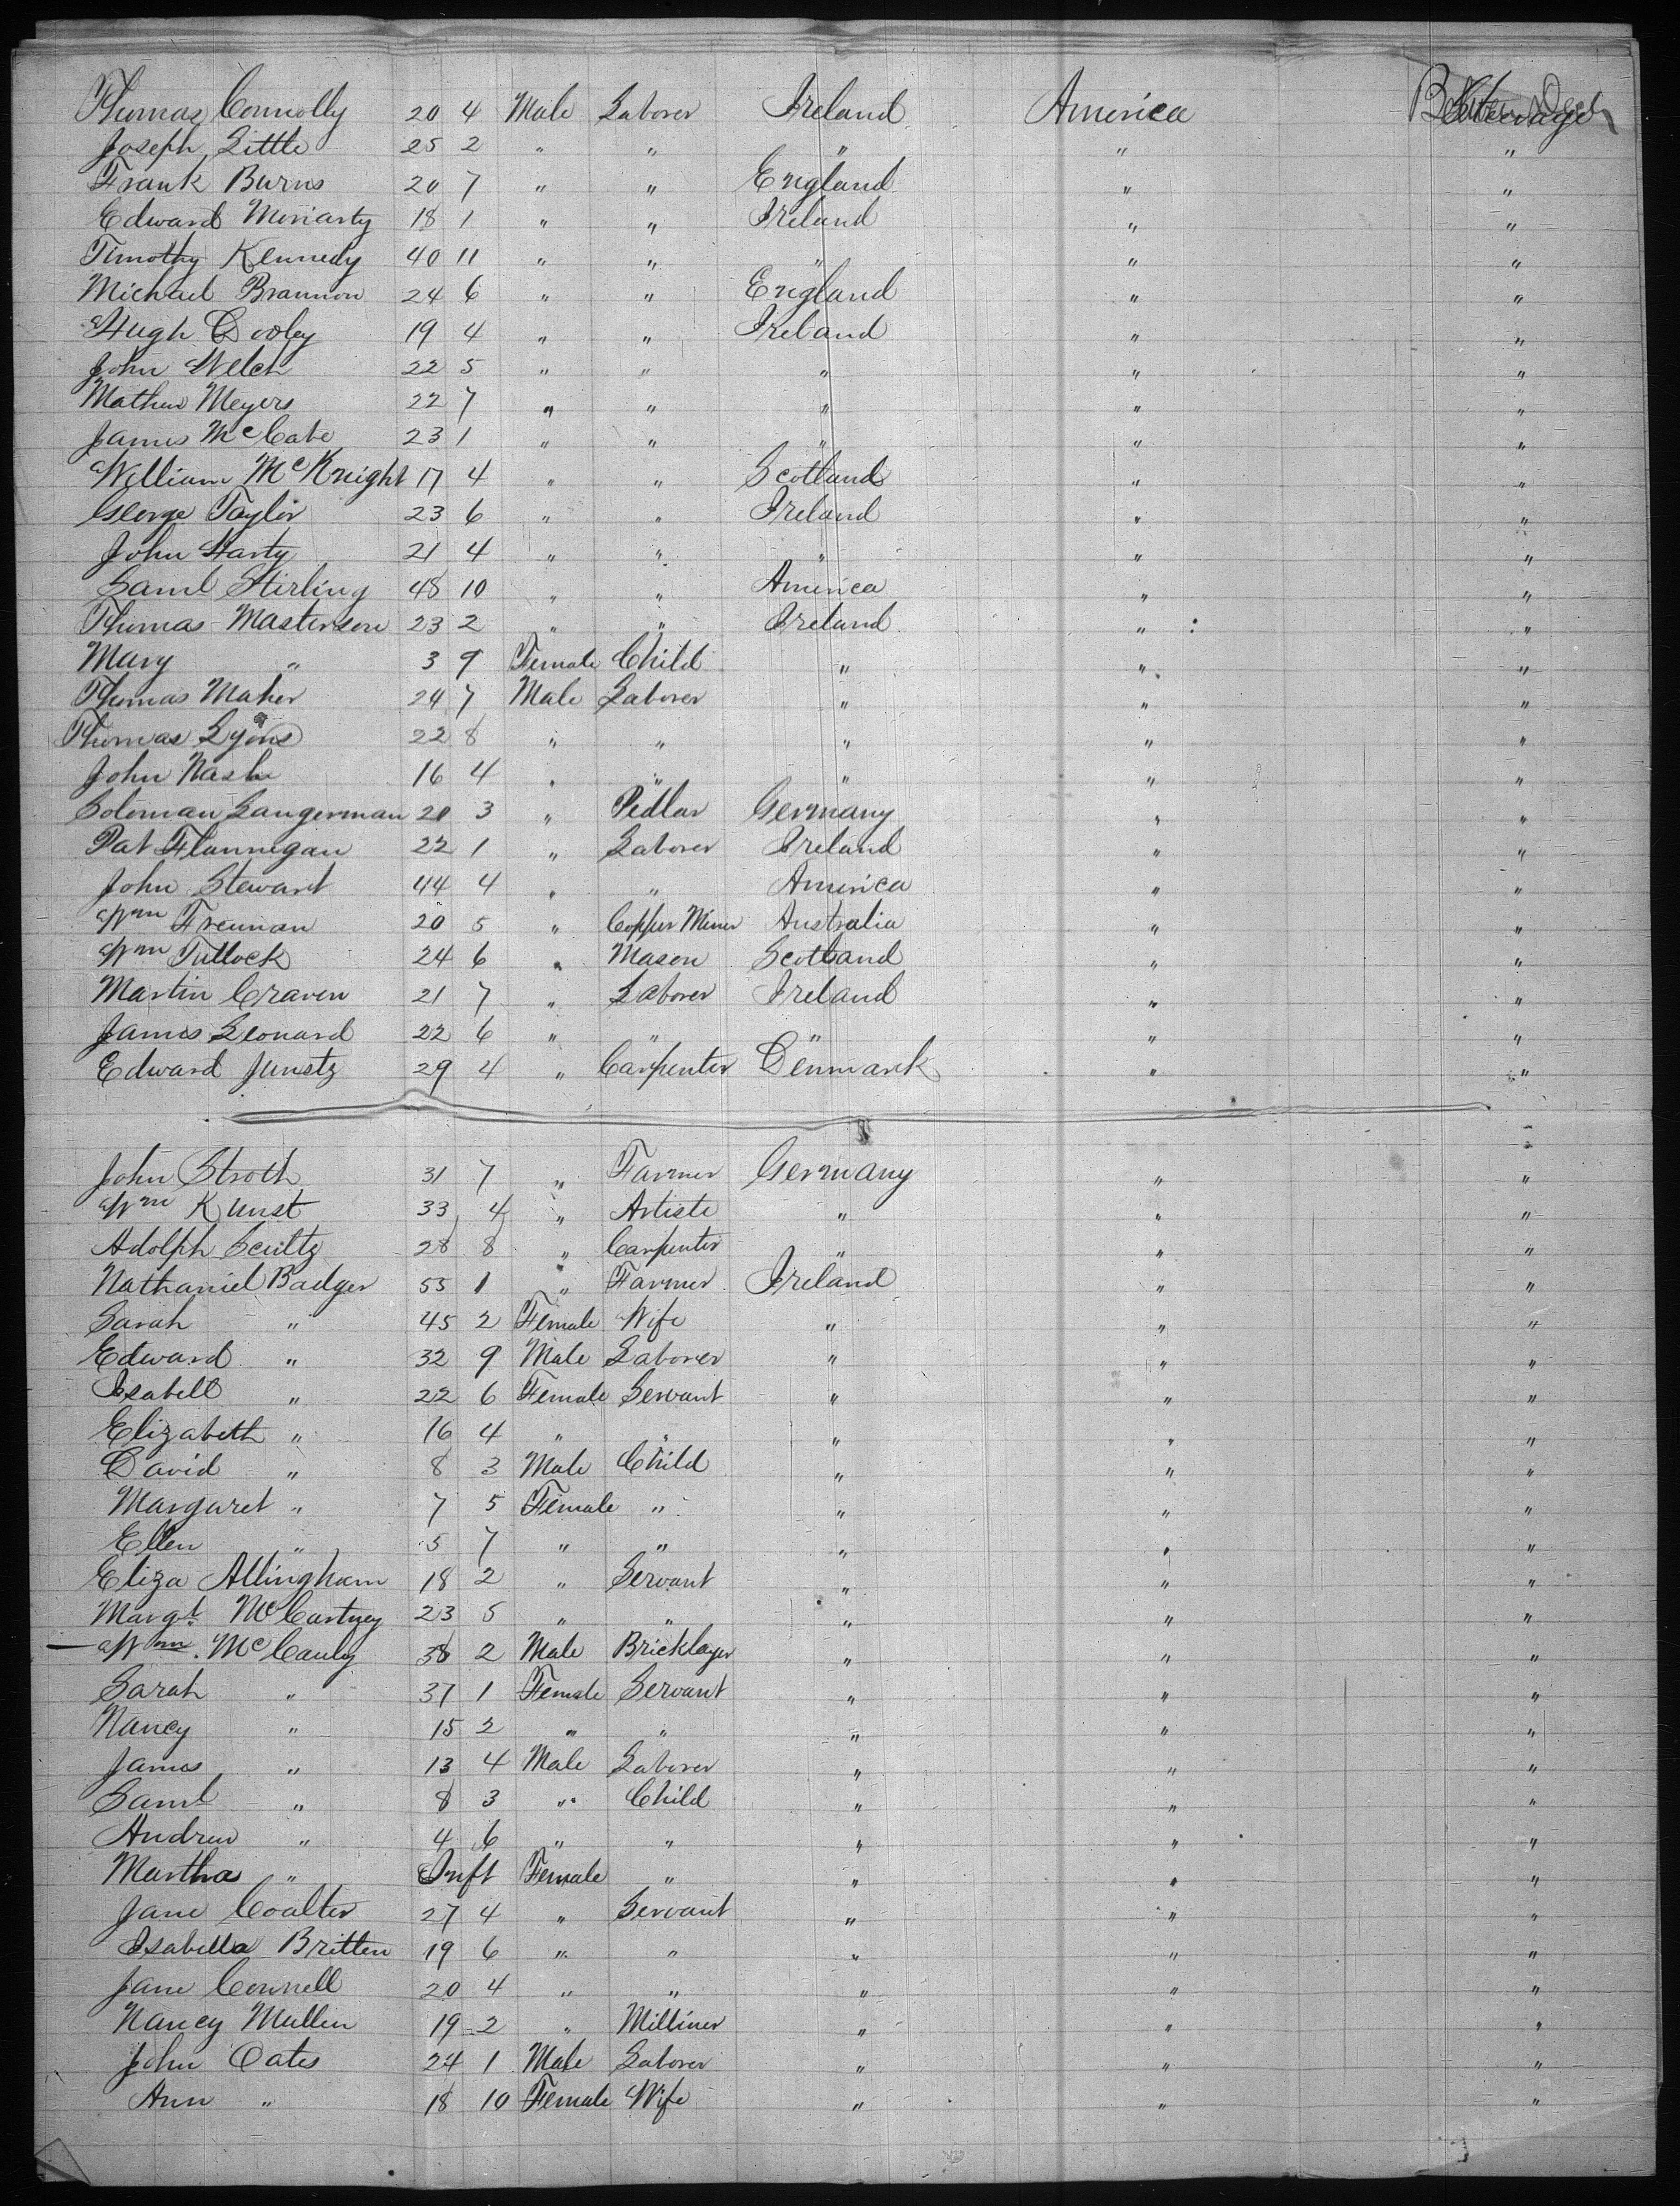 Thomas Connolly 20 4 Male Laborer Ireland America
Joseph Little 25 2 " " " " "
Frank Burns 20 7 " " England " "
Edward Moriarty 18 1 " " Ireland " "
Timothy Kennedy 40 11 " " " " "
Michael Brannon 24 6 " " England " "
Hugh Dooley 19 4 " " Ireland " "
John Welch 22 5 " " " " "
Mathew Meyers 22 7 " " " " "
James McCabe 23 1 " " " " "
William McKnight 17 4 " " Scotland " "
George Taylor 23 6 " " Ireland " "
John Harty 21 4 " " " " "
Saml Stirling 48 10 " " America " "
Thomas Masterson 23 2 " " Ireland " "
Mary " 3 9 Female Child " " "
Thomas Maher 24 7 Male Laborer " " "
Thomas Lyons 22 8 " " " " "
John Nash 16 4 " " " " "
Soloman Langerman 20 3 " Pedlar Germany " "
Pat Flannegan 22 1 " Laborer Ireland " "
John Stewart 44 4 " " America " "
Wm Freeman 20 5 " Copper Miner Australia " "
Wm Tullock 24 6 " Mason Scotland " "
Martin Craven 21 7 " Laborer Ireland " "
James Leonard 22 6 " " " " "
Edward Junstz 29 4 " Carpenter Denmark " "
John Stroth 31 7 " Farmer Germany " "
Wm Kunst 33 4 " Artiste " " "
Adolph Scultz 28 8 " Carpenter " " "
Nathaniel Badger 55 1 " Farmer Ireland " "
Sarah " 45 2 Female Wife " " "
Edward " 32 9 Male Laborer " " "
Isabell " 22 6 Female Servant " " "
Elizabeth " 16 4 " " " " "
David " 8 3 Male Child " " "
Margaret " 7 5 Female " " " "
Ellen " 5 7 " " " " "
Eliza Allingham 18 2 " Servant " " "
Margt McCartney 23 5 " " " " "
Wm. McCauly 38 2 Male Bricklayer " " "
Sarah " 37 1 Female Servant " " "
Nancy " 15 2 " " " " "
James " 13 4 Male Laborer " " "
Saml " 8 3 " Child " " "
Andrew " 4 6 " " " " "
Martha " Inft Female " " " "
Jane Coalter 27 4 " Servant " " "
Isabella Britten 19 6 " " " " "
Jane Connell 20 4 " " " " "
Nancy Mullen 19 2 " Milliner " " "
John Oates 24 1 Male Laborer " " "
Ann " 18 10 Female Wife " " "